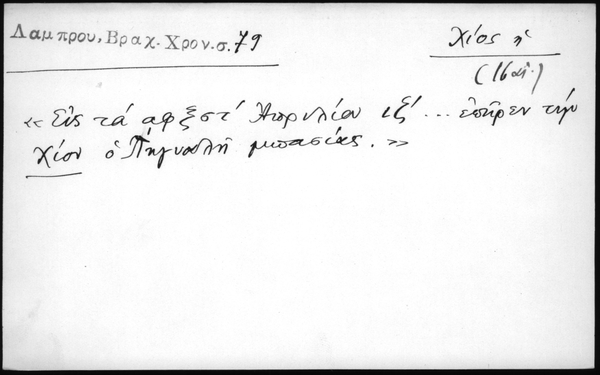 Λαμπρου, Βραχ. Χρον. σ. 79
Χίος ἡ
(16 αἰ.)
« Εἰς τά αφξστ´ Ἀπριλίου ιξ´ ... ἐπῆρεν τήν
Χίον ὁ Πηγναλῆ μπασίας. »